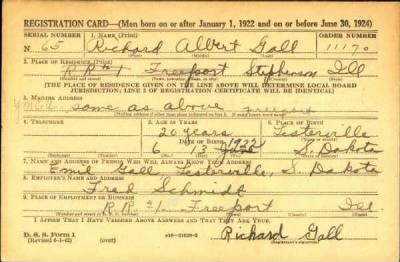 REGISTRATION CARD—(Men born on or after January 1, 1922 and on or before June 30, 1924)
SERIAL NUMBER 1. NAME (Print) ORDER NUMBER
N 65 Richard Albert Gall 11170
2. PLACE OF RESIDENCE (Print)
R.R. #1 Freeport Stephenson Ill
(THE PLACE OF RESIDENCE GIVEN ON THE LINE ABOVE WILL DETERMINE LOCAL BOARD
JURISDICTION; LINE 2 OF REGISTRATION CERTIFICATE WILL BE IDENTICAL)
3. MAILING ADDRESS
same as above
4. TELEPHONE 5. AGE IN YEARS 6. PLACE OF BIRTH
20 years Lesterville
DATE OF BIRTH
6 13 1922 S. Dakota
7. NAME AND ADDRESS OF PERSON WHO WILL ALWAYS KNOW YOUR ADDRESS
Emil Gall Lesterville, S. Dakota
8. EMPLOYER'S NAME AND ADDRESS
Fred Schmidt
9. PLACE OF EMPLOYMENT OR BUSINESS
R.R. #1. Freeport Ill
I AFFIRM THAT I HAVE VERIFIED ABOVE ANSWERS AND THAT THEY ARE TRUE.
D. S. S. Form 1
(Revised 6-1-42)
Richard Gall